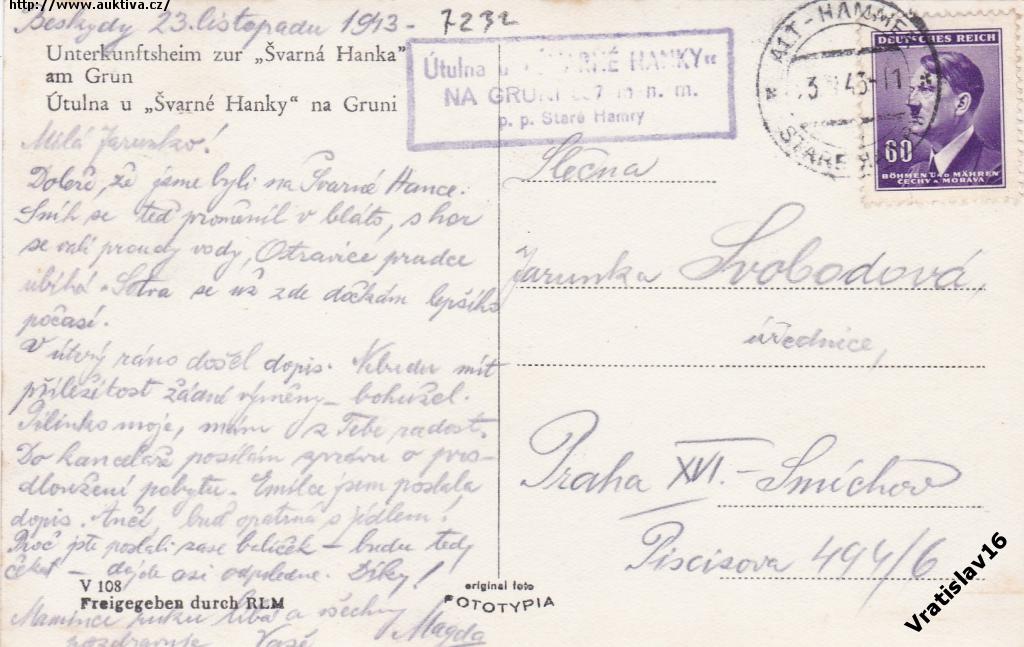 https://www.auktiva.cz/
Beskydy 23. listopadu 1943 -
7232
Unterkunftsheim zur „Švarná Hanka"
am Grün
Útulna u „Švarné Hanky" na Gruni
Útulna u „ŠVARNÉ HANKY"
NA GRUNI m n. m.
p. p. Staré Hamry
ALT-HAMMER
43-11
STARÉ HAMRY
DEUTSCHES REICH
60
BÖHMEN UND MÄHREN
ČECHY A MORAVA
Milá Jarunko!
Dobře, že jsme byli na Švarné Hance.
Sníh se teď proměnil v bláto, s hor
se valí proudy vody, Ostravice prudce
ubíhá. Sotva se už zde dočkám lepšího
počasí.
V úterý ráno došel dopis. Nebudu mít
příležitost žádné výměny - bohužel.
Pilinko moje, mám z Tebe radost.
Do kanceláře posílám zprávu o pro-
dloužení pobytu. Emilce jsem poslala
dopis. Anči, buď opatrná s jídlem!
Proč jste poslali zase balíček - budu tedy
čekat - dojde asi odpoledne. Díky!
Mamince ruku líbá a všechny
pozdravuje Vaše Magda
Slečna
Jarunka Svobodová,
úřednice,
Praha XVI. - Smíchov
Piscisova 494/6
V 108
Freigegeben durch RLM
original foto
FOTOTYPIA
Vratislav16